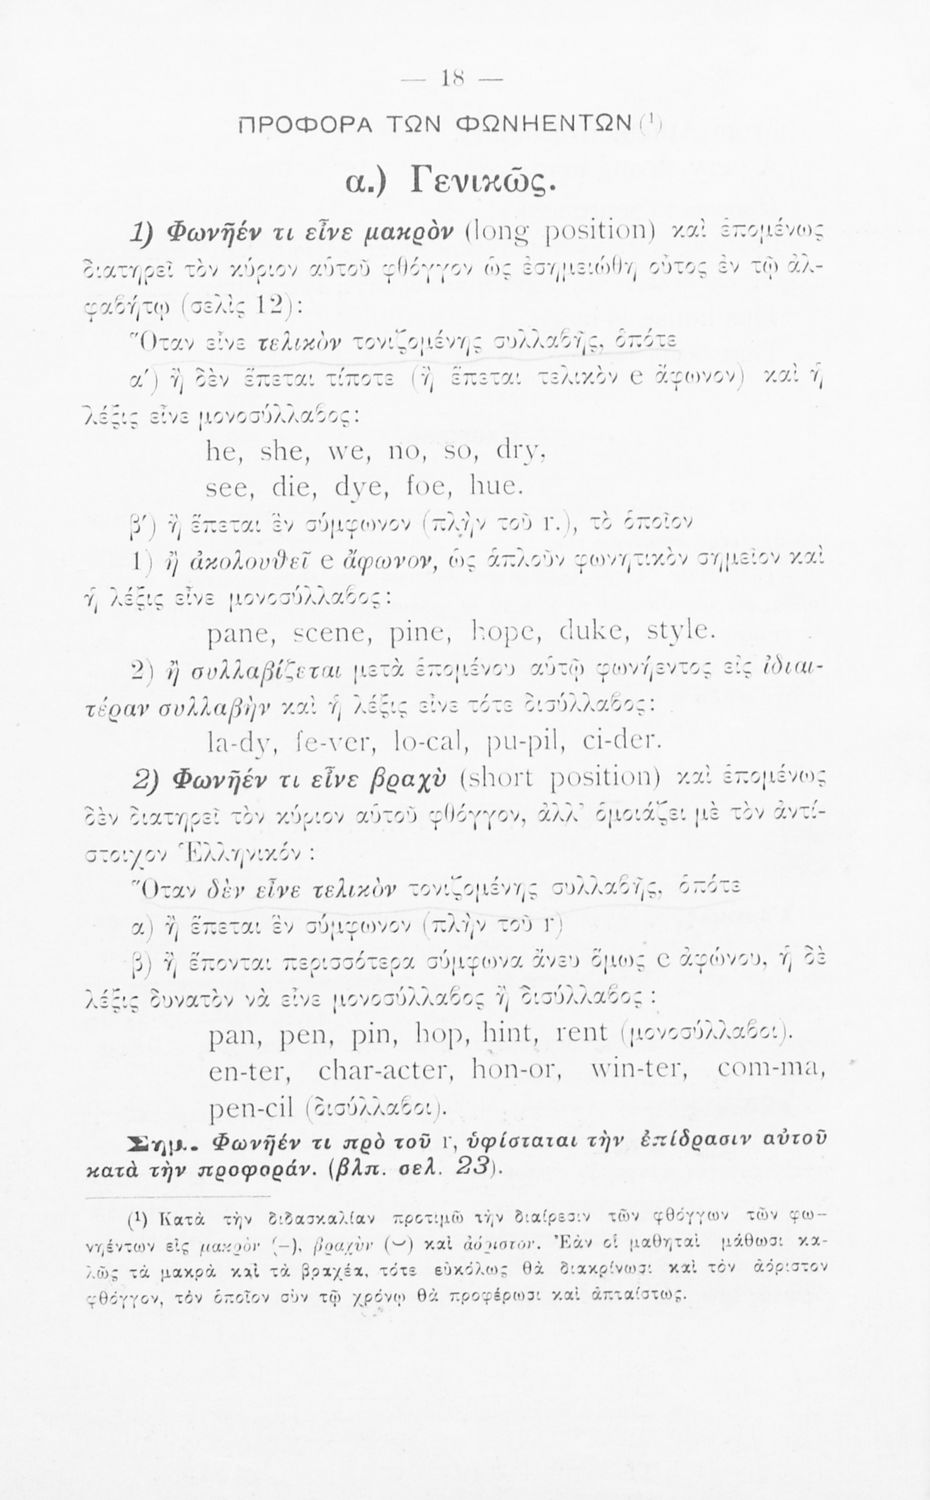 — 18 —
ΠΡΟΦΟΡΑ ΤΩΝ ΦΩΝΗΕΝΤΩΝ (¹)
α.) Γενικῶς.
1) Φωνῆέν τι εἶνε μακρὸν (long position) καὶ ἑπομένως
διατηρεῖ τὸν κύριον αὑτοῦ φθόγγον ὡς ἐσημειώθη οὗτος ἐν τῷ ἀλ-
φαβήτῳ (σελὶς 12):
Ὅταν εἶνε τελικὸν τονιζομένης συλλαβῆς, ὁπότε
α′) ἢ δὲν ἕπεται τίποτε (ἢ ἕπεται τελικὸν e ἄφωνον) καὶ ἡ
λέξις εἶνε μονοσύλλαβος:
he, she, we, no, so, dry,
see, die, dye, foe, hue.
β′) ἢ ἕπεται ἓν σύμφωνον (πλὴν τοῦ r.), τὸ ὁποῖον
1) ἢ ἀκολουθεῖ e ἄφωνον, ὡς ἁπλοῦν φωνητικὸν σημεῖον καὶ
ἡ λέξις εἶνε μονοσύλλαβος:
pane, scene, pine, hope, duke, style.
2) ἢ συλλαβίζεται μετὰ ἑπομένου αὐτῷ φωνήεντος εἰς ἰδιαι-
τέραν συλλαβὴν καὶ ἡ λέξις εἶνε τότε δισύλλαβος:
la-dy, fe-ver, lo-cal, pu-pil, ci-der.
2) Φωνῆέν τι εἶνε βραχὺ (short position) καὶ ἑπομένως
δὲν διατηρεῖ τὸν κύριον αὑτοῦ φθόγγον, ἀλλ' ὁμοιάζει μὲ τὸν ἀντί-
στοιχον Ἑλληνικόν :
Ὅταν δὲν εἶνε τελικὸν τονιζομένης συλλαβῆς, ὁπότε
α) ἢ ἕπεται ἓν σύμφωνον (πλὴν τοῦ r)
β) ἢ ἕπονται περισσότερα σύμφωνα ἄνευ ὅμως e ἀφώνου, ἡ δὲ
λέξις δυνατὸν νὰ εἶνε μονοσύλλαβος ἢ δισύλλαβος :
pan, pen, pin, hop, hint, rent (μονοσύλλαβοι).
en-ter, char-acter, hon-or, win-ter, com-ma,
pen-cil (δισύλλαβοι).
Σημ.. Φωνῆέν τι πρὸ τοῦ r, ὑφίσταται τὴν ἐπίδρασιν αὐτοῦ
κατὰ τὴν προφοράν. (βλπ. σελ. 23).
(¹) Κατὰ τὴν διδασκαλίαν προτιμῶ τὴν διαίρεσιν τῶν φθόγγων τῶν φω-
νηέντων εἰς μακρὸν (–), βραχὺν (⏑) καὶ ἀόριστον. Ἐὰν οἱ μαθηταὶ μάθωσι κα-
λῶς τὰ μακρὰ καὶ τὰ βραχέα, τότε εὐκόλως θὰ διακρίνωσι καὶ τὸν ἀόριστον
φθόγγον, τὸν ὁποῖον σὺν τῷ χρόνῳ θὰ προφέρωσι καὶ ἀπταίστως.